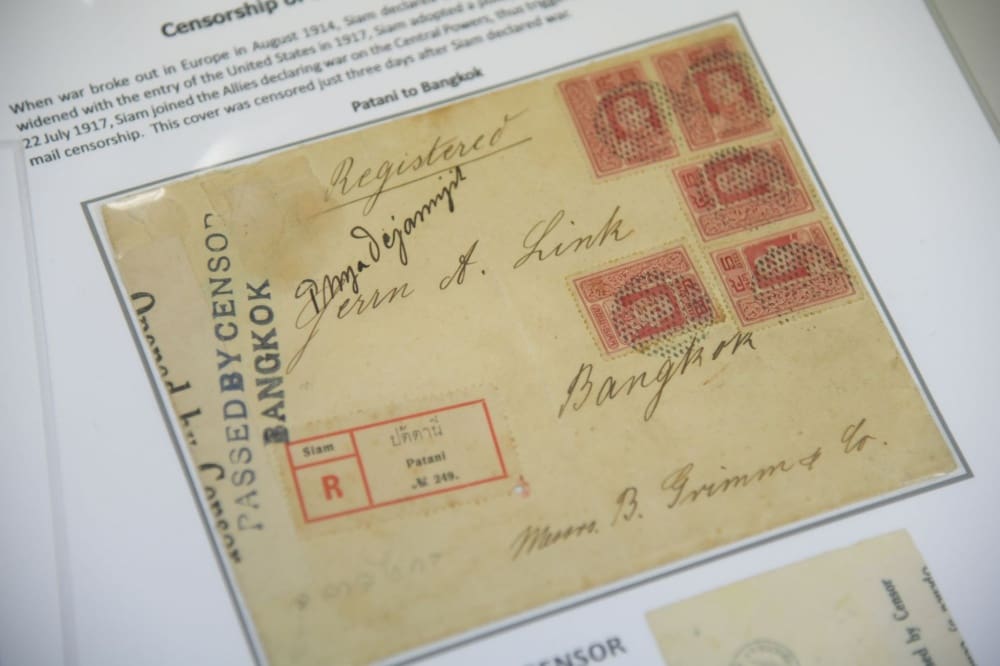 Censorship of
When war broke out in Europe in August 1914, Siam declared
widened with the entry of the United States in 1917, Siam adopted a
22 July 1917, Siam joined the Allies declaring war on the Central Powers, thus
mail censorship. This cover was censored just three days after Siam declared war.
Patani to Bangkok
Registered
Herrn A. Link
Bangkok
Messrs. B. Grimm & Co.
PASSED BY CENSOR
BANGKOK
Opened by Censor
Siam
R
ปัตตานี
Patani
№ 249.
ENSOR
by Censor